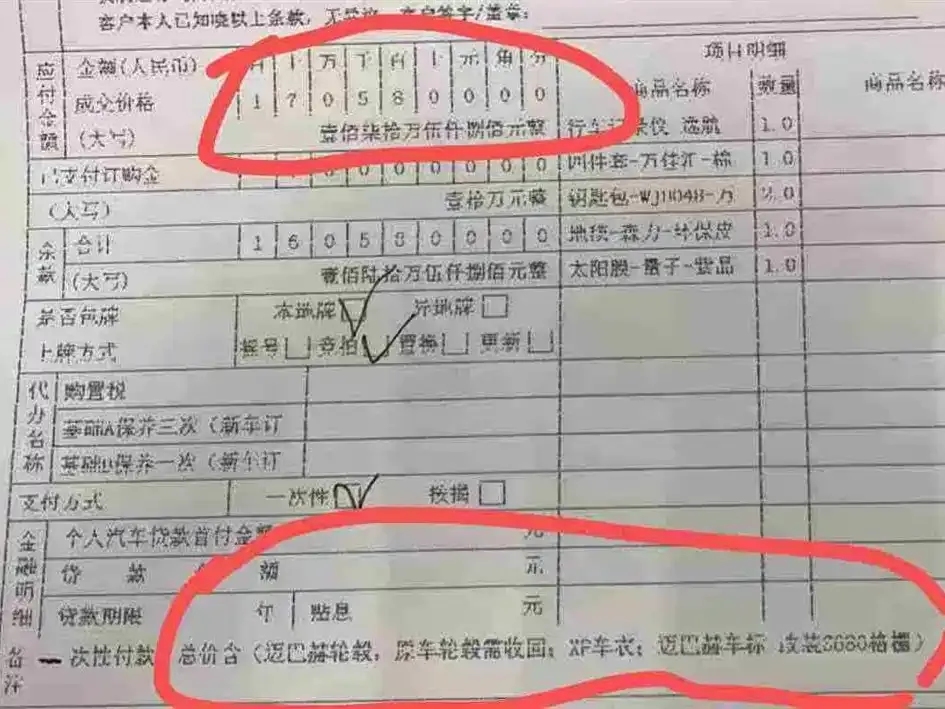 客户本人已知晓以上条款，无异议，客户签字/盖章：
应付金额 金额(人民币) 百 十 万 千 百 十 元 角 分 项目明细
成交价格 1 7 0 5 8 0 0 0 0 商品名称 数量 商品名称
(大写) 壹佰柒拾万伍仟捌佰元整 行车记录仪 1.0
已支付订购金 0 0 0 0 0 0 0 四件套-万佳汇-棉 1.0
(大写) 壹拾万元整 钥匙包 2.0
余款 合计 1 6 0 5 8 0 0 0 0 地毯-森力-环保皮 1.0
(大写) 壹佰陆拾万伍仟捌佰元整 太阳膜-量子-紫晶 1.0
是否包牌 本地牌 外地牌
上牌方式 摇号 竞拍 置换 更新
代办名称 购置税
基础A保养三次（新车订
基础B保养一次（新车订
支付方式 一次性 按揭
金融明细 个人汽车贷款首付金额 元
贷 款 金 额 元
贷款期限 年 贴息 元
备注 一次性付款 总价含（迈巴赫轮毂，原车轮毂需收回；XP车衣；迈巴赫车标 改装S680格栅）